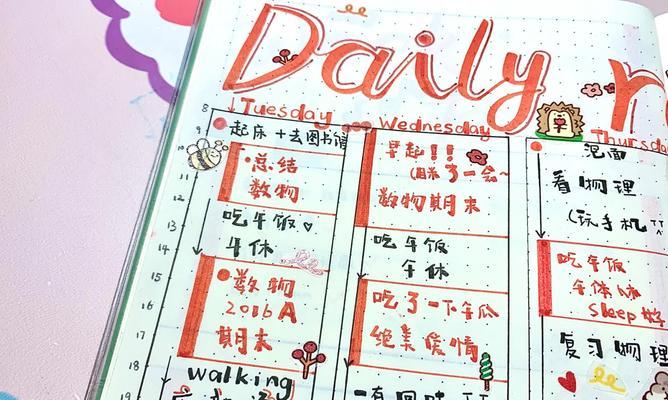 Daily r
8
9
10
11
12
13
14
15
16
17
18
19
Tuesday
起床 + 去图书馆
·总结
数物
吃午饭♡
午休
数物
2016A
期末
walking
Wednesday
早起!!
了一会~
数物期末
吃午饭
午休
吃了一下午瓜
绝美爱情
一有回味
Thursda
泡面
看物理
(玩手机 TT
吃午饭
午休
Sleep
复习物理